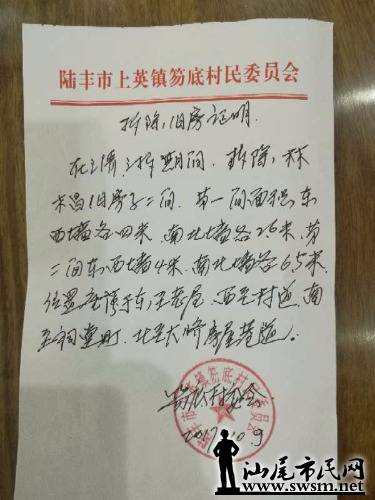 陆丰市上英镇笏底村民委员会
拆除旧房证明
在立清、拆期间、拆除,林
木昌旧房子二间、第一间面积、东
西墙各四米、南北墙各26米、第
二间东、西墙4米、南北墙各65米
位置座落于东、至巷屋、西至村道、南
至祠堂町、北至大修房屋巷道
笏底村委会
2017.10.9
陆丰市上英镇笏底村民委员会
汕尾市民网
www.swsm.net